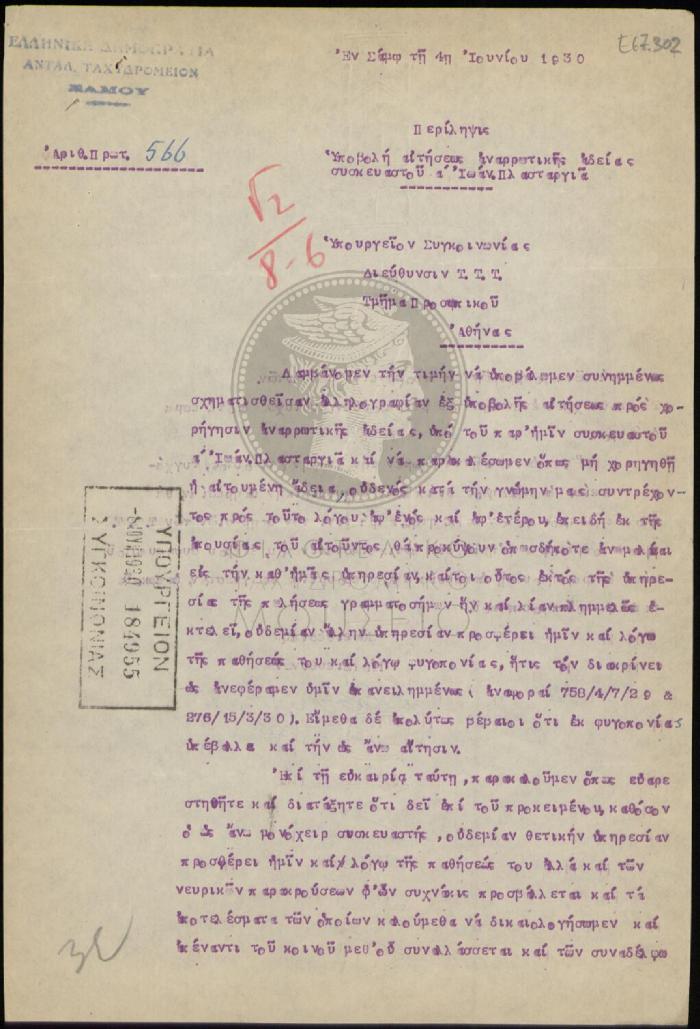 ΕΛΛΗΝΙΚΗ ΔΗΜΟΚΡΑΤΙΑ
ΑΝΤΑΛ. ΤΑΧΥΔΡΟΜΕΙΟΝ
ΣΑΜΟΥ
Ἐν Σάμῳ τῇ 4ῃ Ἰουνίου 1930
Ε67.302
Ἀριθ.Πρωτ. 566
Περίληψις
Ὑποβολή αἰτήσεως ἀναρρωτικῆς ἀδείας
συσκευαστοῦ α΄ Ἰωάν.Πλασταργιᾶ
√2
8-6
Ὑπουργεῖον Συγκοινωνίας
Διεύθυνσιν Τ.Τ.Τ.
Τμῆμα Προσωπικοῦ
Ἀθήνας
Λαμβάνομεν τήν τιμήν νά ὑποβάλωμεν συνημμένως
σχηματισθεῖσαν ἀλληλογραφίαν ἐξ ὑποβολῆς αἰτήσεως πρός χο-
ρήγησιν ἀναρρωτικῆς ἀδείας, ὑπό τοῦ παρ'ἡμῖν συσκευαστοῦ
α΄ Ἰωάν.Πλασταργιᾶ καί νά παρακαλέσωμεν ὅπως μή χορηγηθῇ
ἡ αἰτουμένη ἄδεια, οὐδενός κατά τήν γνώμην μας συντρέχον-
τος πρός τοῦτο λόγου ἀφ'ἑνός καί ἀφ'ἑτέρου, ἐπειδή ἐκ τῆς
ἀπουσίας τοῦ αἰτοῦντος θά προκύψουν ὁπωσδήποτε ἀνωμαλίαι
εἰς τήν καθ'ἡμᾶς ὑπηρεσίαν, καίτοι οὗτος ἐκτός τῆς ὑπηρε-
σίας τῆς πωλήσεως γραμματοσήμων ἥν καί λίαν πλημμελῶς ἐ-
κτελεῖ, οὐδεμίαν ἄλλην ὑπηρεσίαν προσφέρει ἡμῖν καί λόγῳ
τῆς παθήσεώς του καί λόγῳ φυγοπονίας, ἥτις τόν διακρίνει
ὡς ἀνεφέραμεν ὑμῖν ἐπανειλημμένως ( ἀναφοραί 758/4/7/29 &
276/15/3/30). Εἴμεθα δέ ἀπολύτως βέβαιοι ὅτι ἐκ φυγοπονίας
ὑπέβαλλα καί τήν ὡς ἄνω αἴτησιν.
Ἐπί τῇ εὐκαιρίᾳ ταύτῃ, παρακαλοῦμεν ὅπως εὐαρε
στηθῆτε καί διατάξητε ὅτι δεῖ ἐπί τοῦ προκειμένου, καθόσον
ὁ ὡς ἄνω μονόχειρ συσκευαστής, οὐδεμίαν θετικήν ὑπηρεσίαν
προσφέρει ἡμῖν καί λόγῳ τῆς παθήσεώς του ἀλλά καί τῶν
νευρικῶν παρακρούσεων ὑφ'ὧν συχνάκις προσβάλλεται καί τά
ἀποτελέσματα τῶν ὁποίων καλούμεθα νά δικαιολογήσωμεν καί
ἀπέναντι τοῦ κοινοῦ μεθ'οὗ συναλλάσσεται καί τῶν συναδέλφω
ΥΠΟΥΡΓΕΙΟΝ
184955
ΣΥΓΚΟΙΝΩΝΙΑΣ
ΜΟΥΣΕΙΟ